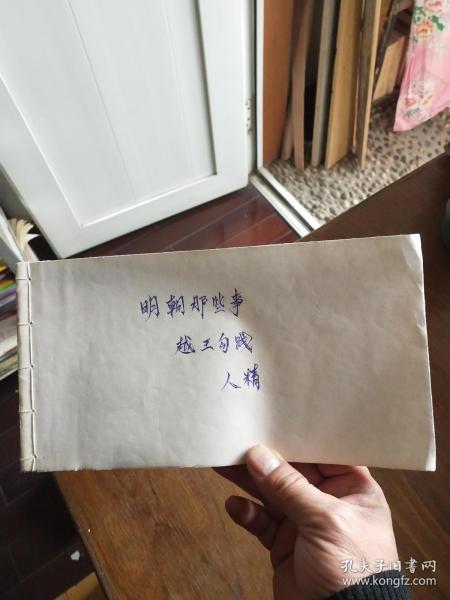 明朝那些事
越王勾践
人精
孔夫子旧书网
www.kongfz.com